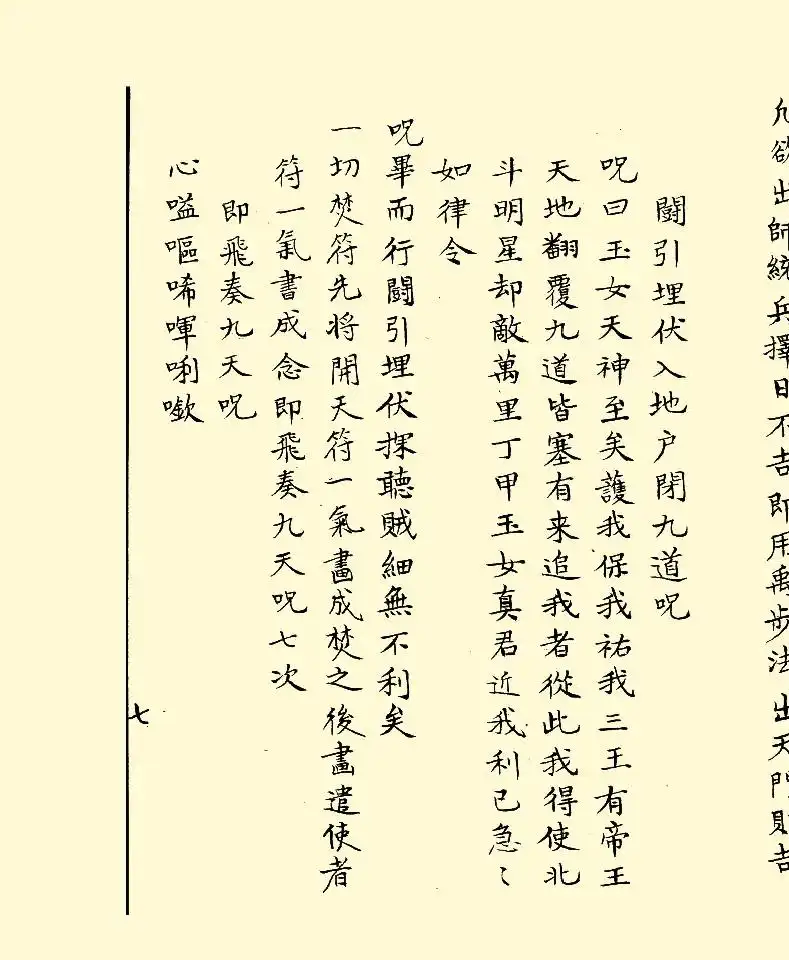 凢欲出師統兵擇日不吉即用禹步法出天門則吉
闘引埋伏入地户閉九道呪
呪曰玉女天神至矣護我保我祐我三王有帝王
天地翻覆九道皆塞有来追我者從此我得使北
斗明星却敵萬里丁甲玉女真君近我利已急〻
如律令
呪畢而行闘引埋伏探聽賊細無不利矣
一切焚符先将開天符一氣畫成焚之後畫遣使者
符一氣書成念即飛奏九天呪七次
即飛奏九天呪
心嗌嘔唏喗唎㘔
七